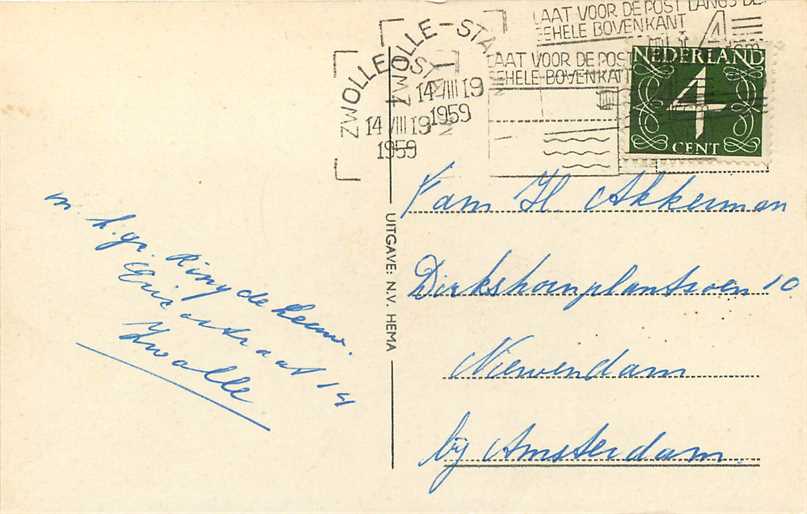 LAAT VOOR DE POST LANGS DE
GEHELE BOVENKANT
LAAT VOOR DE POST
GEHELE BOVENKANT
ZWOLLE-STA
ZWOLLE
14 VIII 19
1959
14 VIII 19
1959
NEDERLAND
4
CENT
Fam H. Akkerman
Dirkshornplantsoen 10
Nieuwendam
bij Amsterdam.
m. h. gr. Riny de Leeuw.
straat 14
Zwolle
UITGAVE: N.V. HEMA